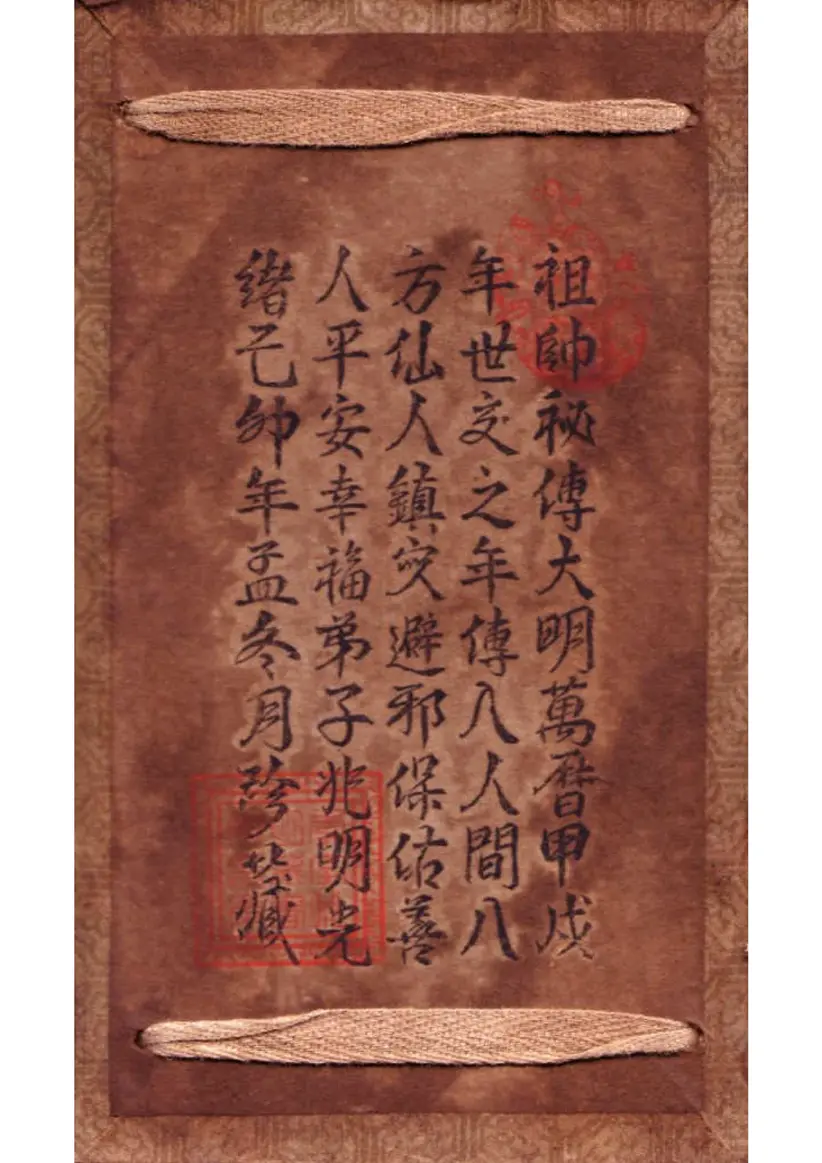 祖帥秘傳大明萬曆甲戌
年世交之年傳入人間八
方仙人鎮災避邪保佑善
人平安幸福弟子兆明光
緒己卯年孟冬月珍藏